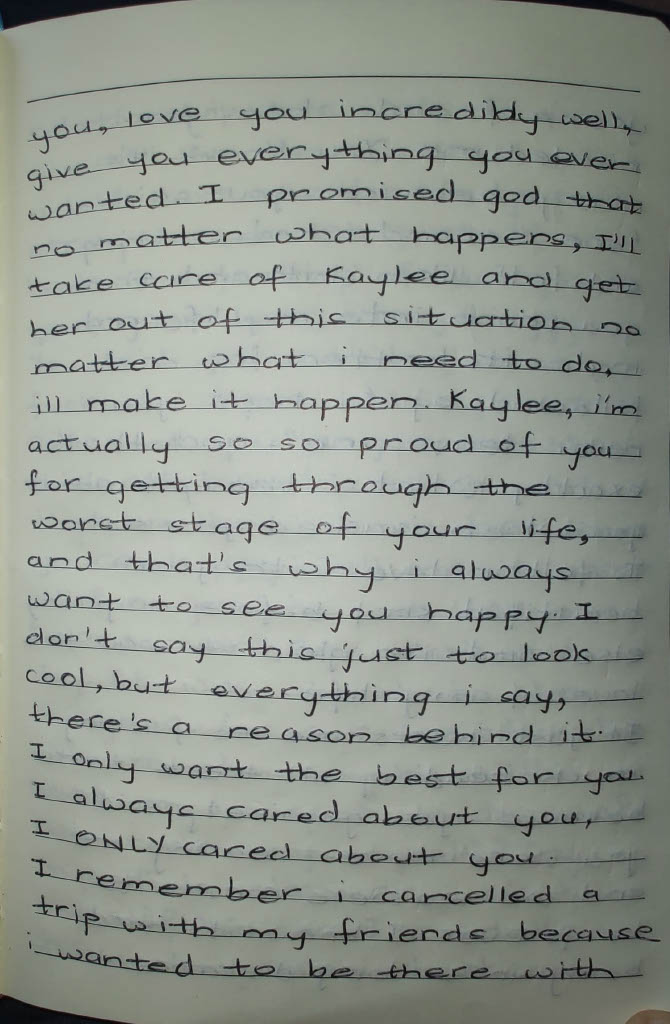 you, love you incredibly well,
give you everything you ever
wanted. I promised god that
no matter what happens, I'll
take care of Kaylee and get
her out of this situation no
matter what i need to do,
ill make it happen. Kaylee, i'm
actually so so proud of you
for getting through the
worst stage of your life,
and that's why i always
want to see you happy. I
don't say this just to look
cool, but everything i say,
there's a reason behind it.
I only want the best for you.
I always cared about you,
I ONLY cared about you.
I remember i cancelled a
trip with my friends because
i wanted to be there with